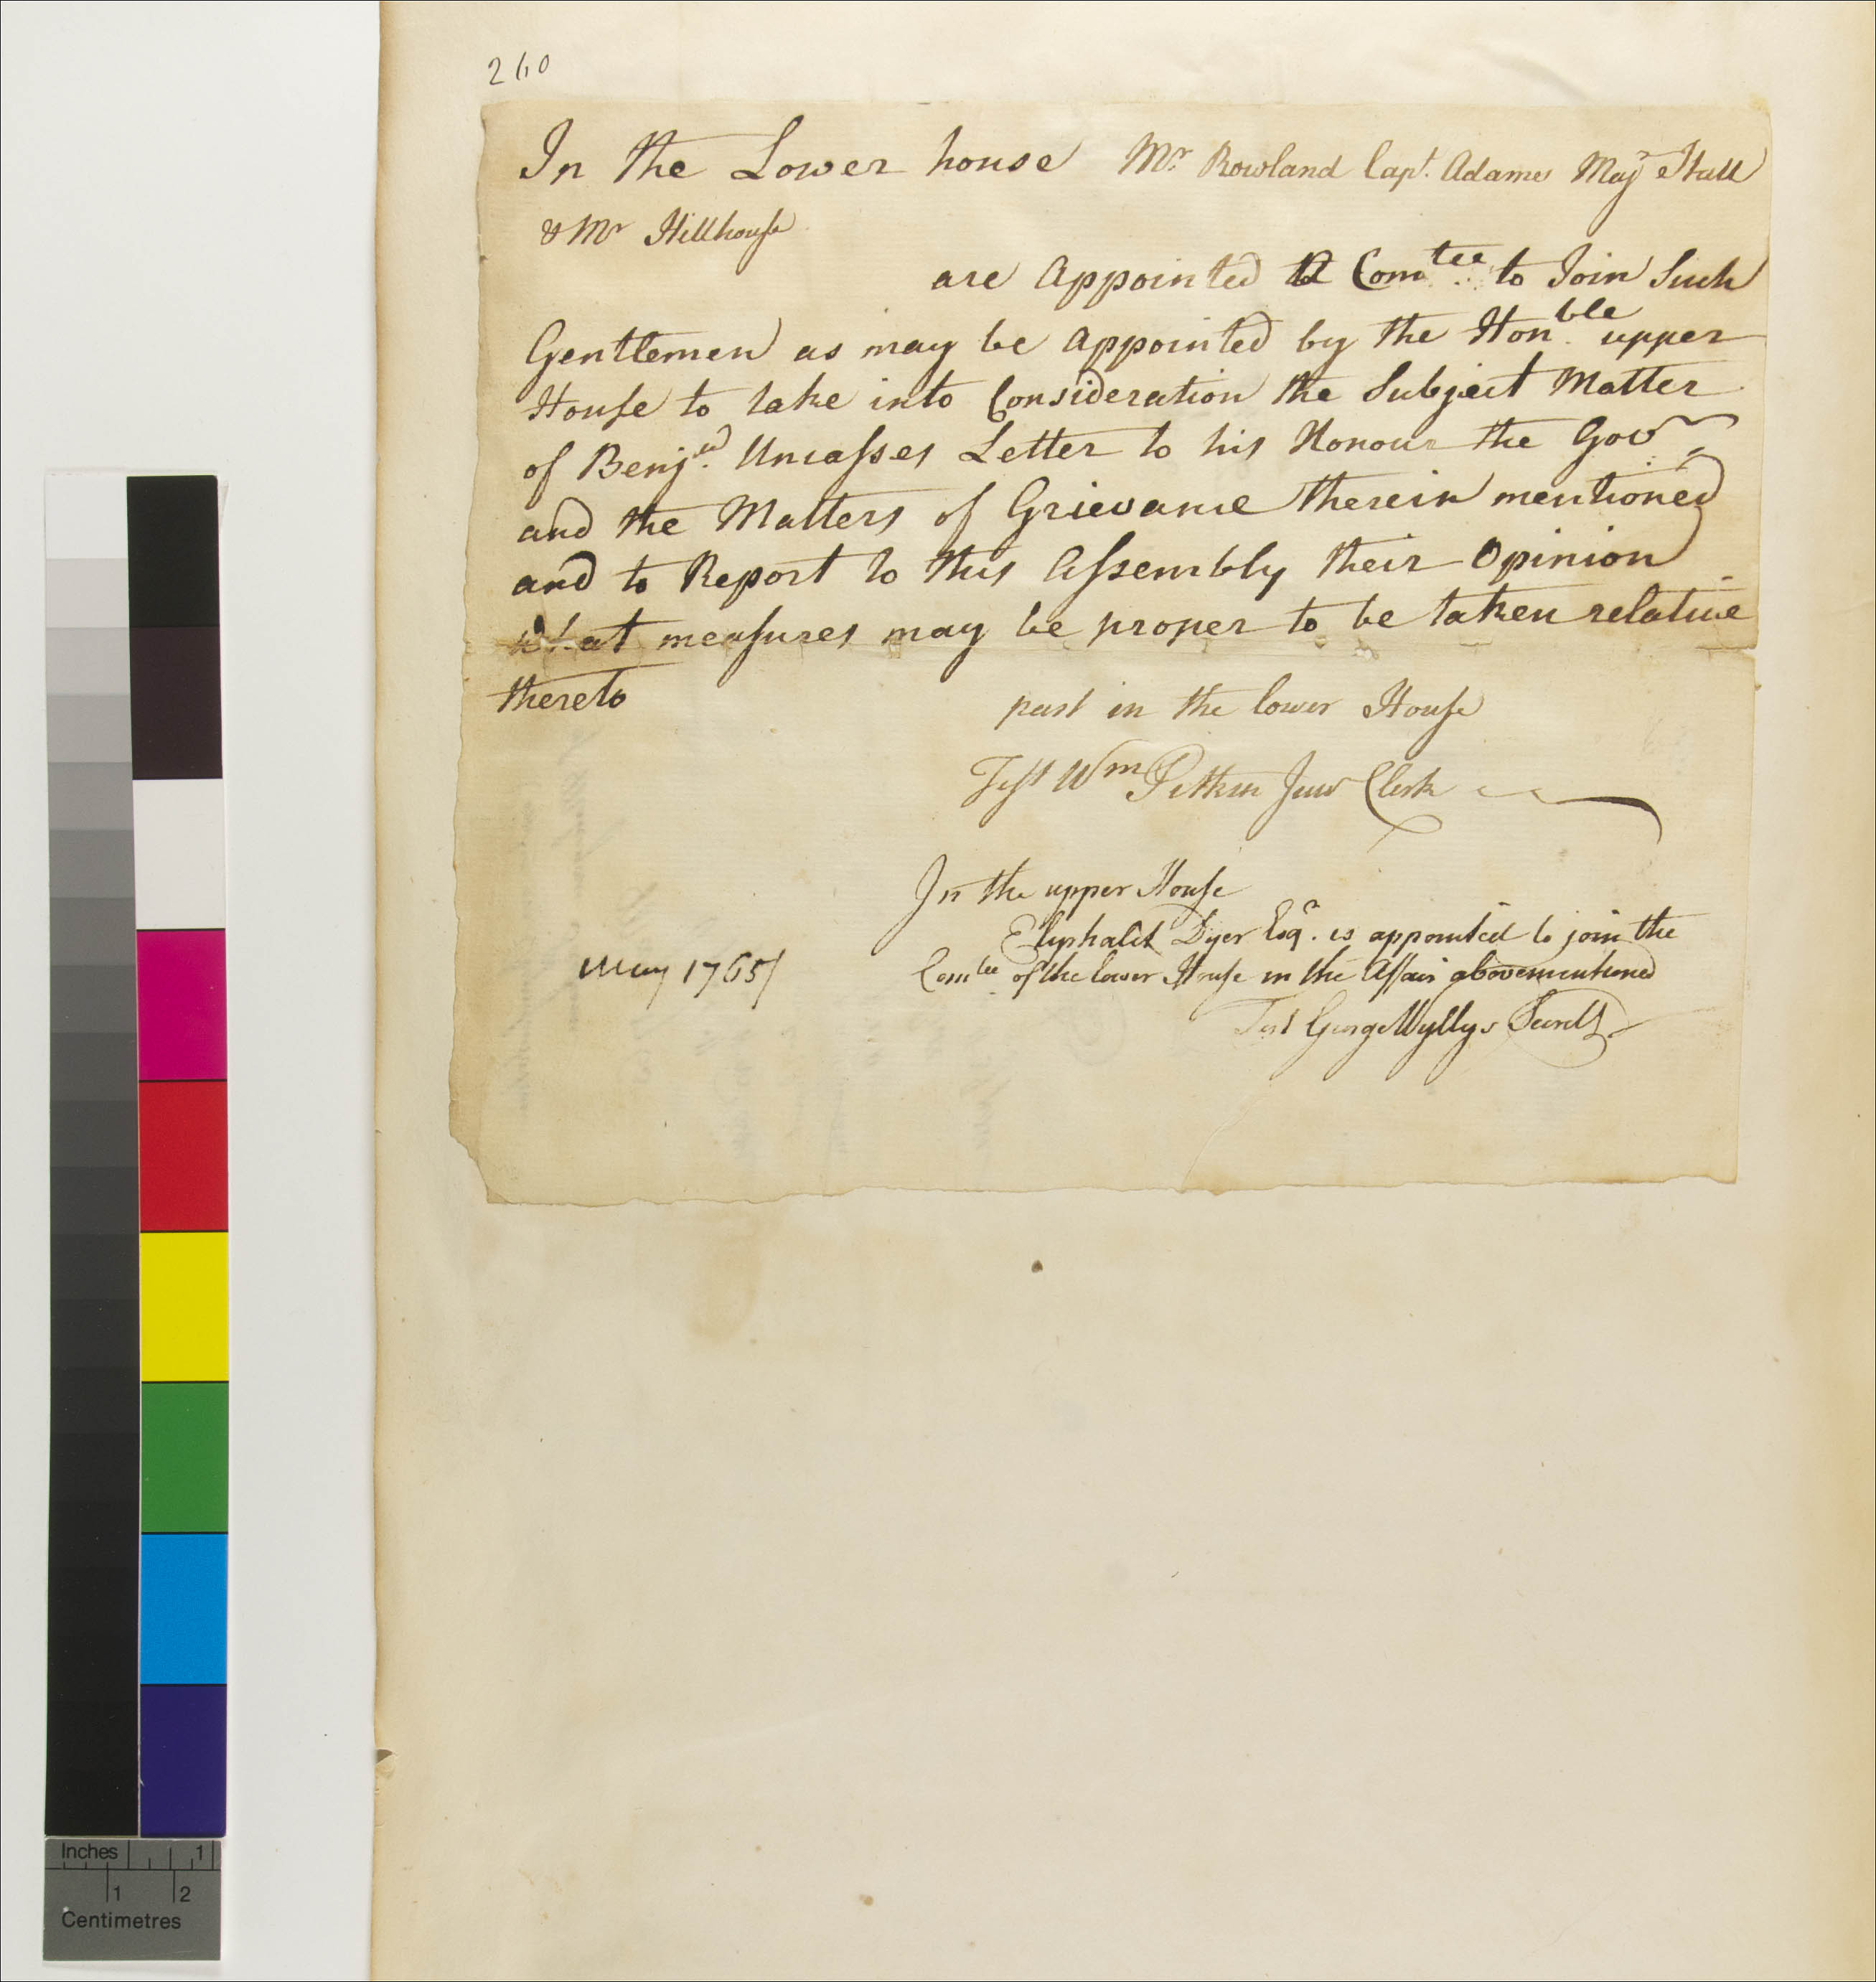 260
In the Lower house Mr Rowland Capt. Adams Majr Hall
& Mr Hillhouse
are Appointed a Comtee to Join Such
Gentlemen as may be Appointed by the Honble upper
House to take into Consideration the Subject Matter
of Benjn. Uncasses Letter to his Honour the Govr
and the Matters of Grievance therein mentioned
and to Report to this Assembly their Opinion
what measures may be proper to be taken relative
thereto
past in the lower House
Test Wm Pitkin Junr Clerk
In the upper House
Eliphalet Dyer Esqr. is appointed to join the
May 1765
Comtee of the lower House in the Affair abovementioned
Test George Wyllys Secrety
Inches 1
1 2
Centimetres